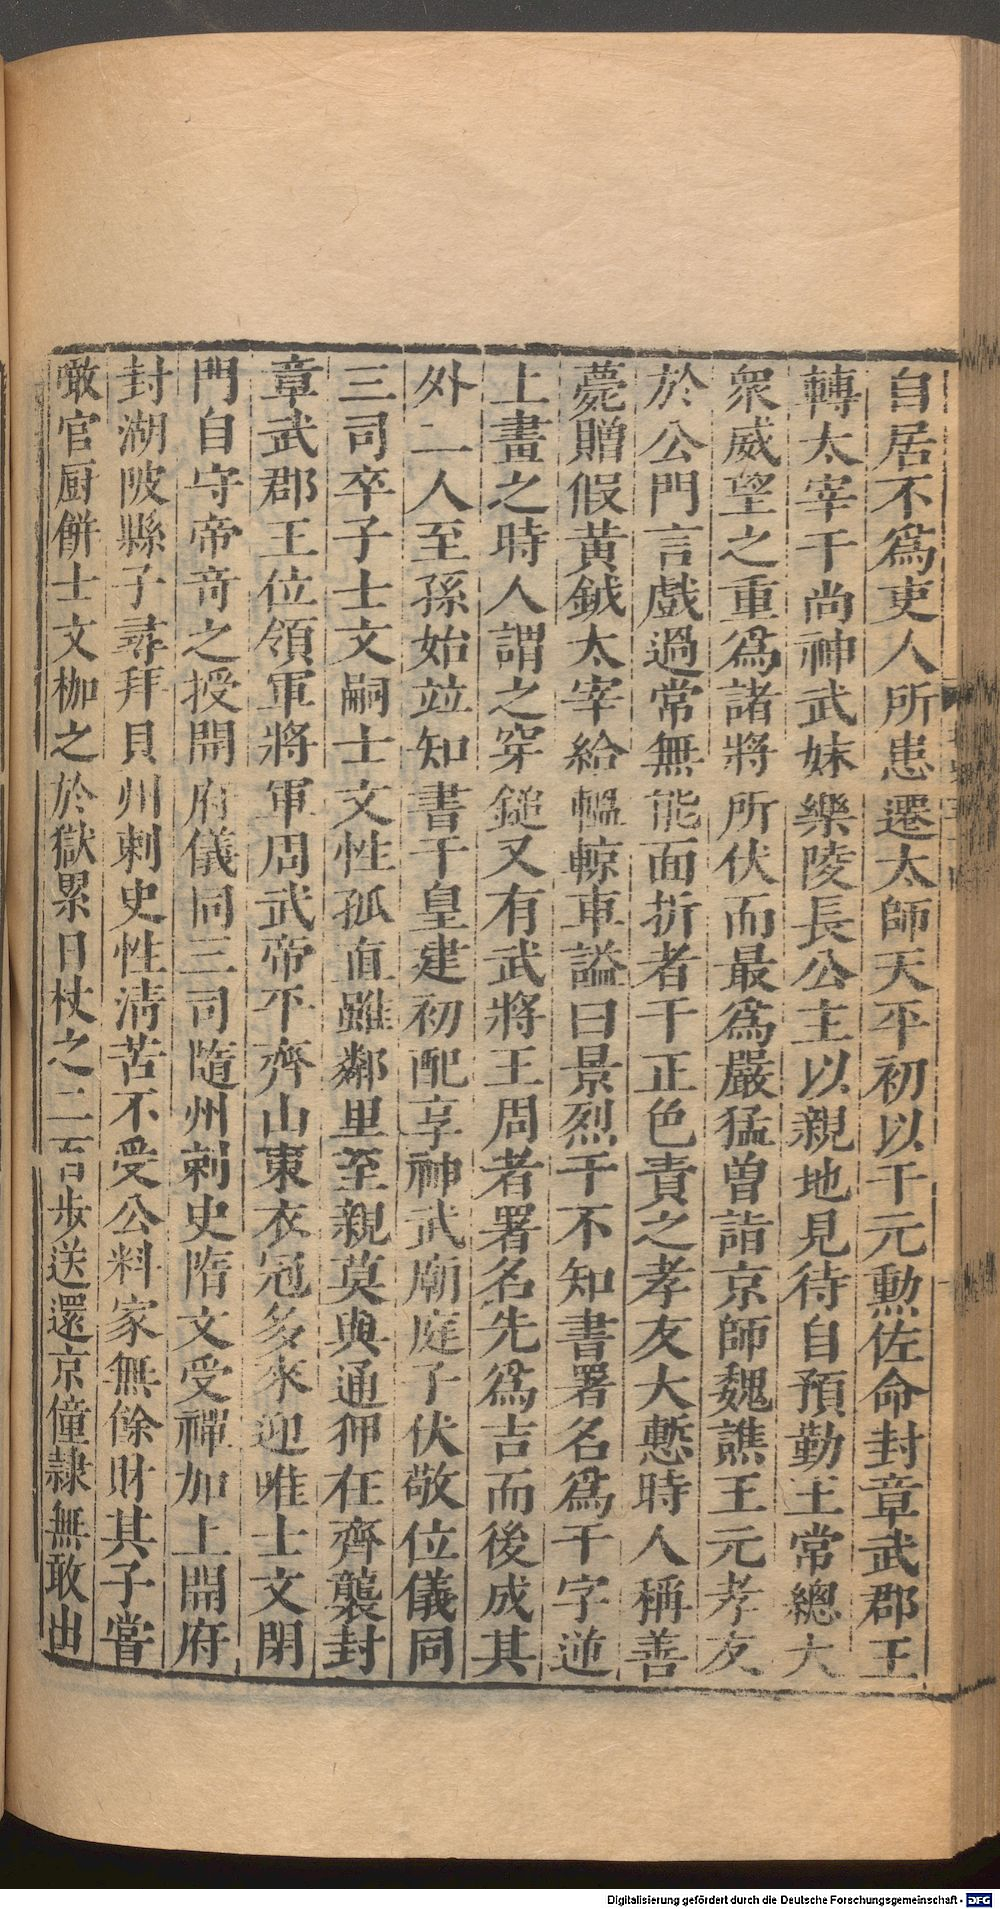 自居不爲吏人所患遷太師天平初以干元勲佐命封章武郡王
轉太宰干尚神武妹樂陵長公主以親地見待自預勤王常總大
衆威望之重爲諸將所伏而最爲嚴猛曽詣京師魏譙王元孝友
於公門言戲過常無能面折者干正色責之孝友大慙時人稱善
薨贈假黃鉞太宰給轀輬車諡曰景烈干不知書署名爲干字逆
上畫之時人謂之穿鎚又有武將王周者署名先爲吉而後成其
外二人至孫始竝知書干皇建初配享神武廟庭子伏敬位儀同
三司卒子士文嗣士文性孤直雖鄰里至親莫與通狎在齊襲封
章武郡王位領軍將軍周武帝平齊山東衣冠多來迎唯士文閉
門自守帝竒之授開府儀同三司隨州刺史隋文受禪加上開府
封湖陂縣子尋拜貝州刺史性清苦不受公料家無餘財其子嘗
噉官厨餅士文枷之於獄累日杖之二百歩送還京僮隷無敢出
Digitalisierung gefördert durch die Deutsche Forschungsgemeinschaft - DFG